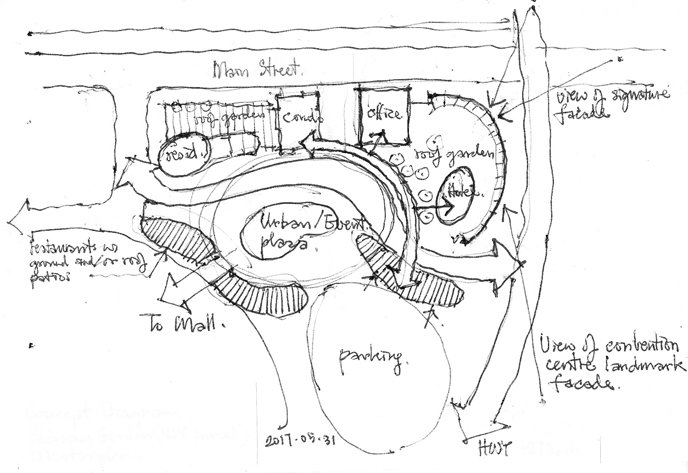 Main Street.
roof garden
Condo
Office
view of signature
facade.
resid.
roof garden
Hotel.
Urban/Event
plaza.
restaurants w
ground and/or roof
patios
To Mall.
parking.
View of convention
centre landmark
facade.
2017.05.31